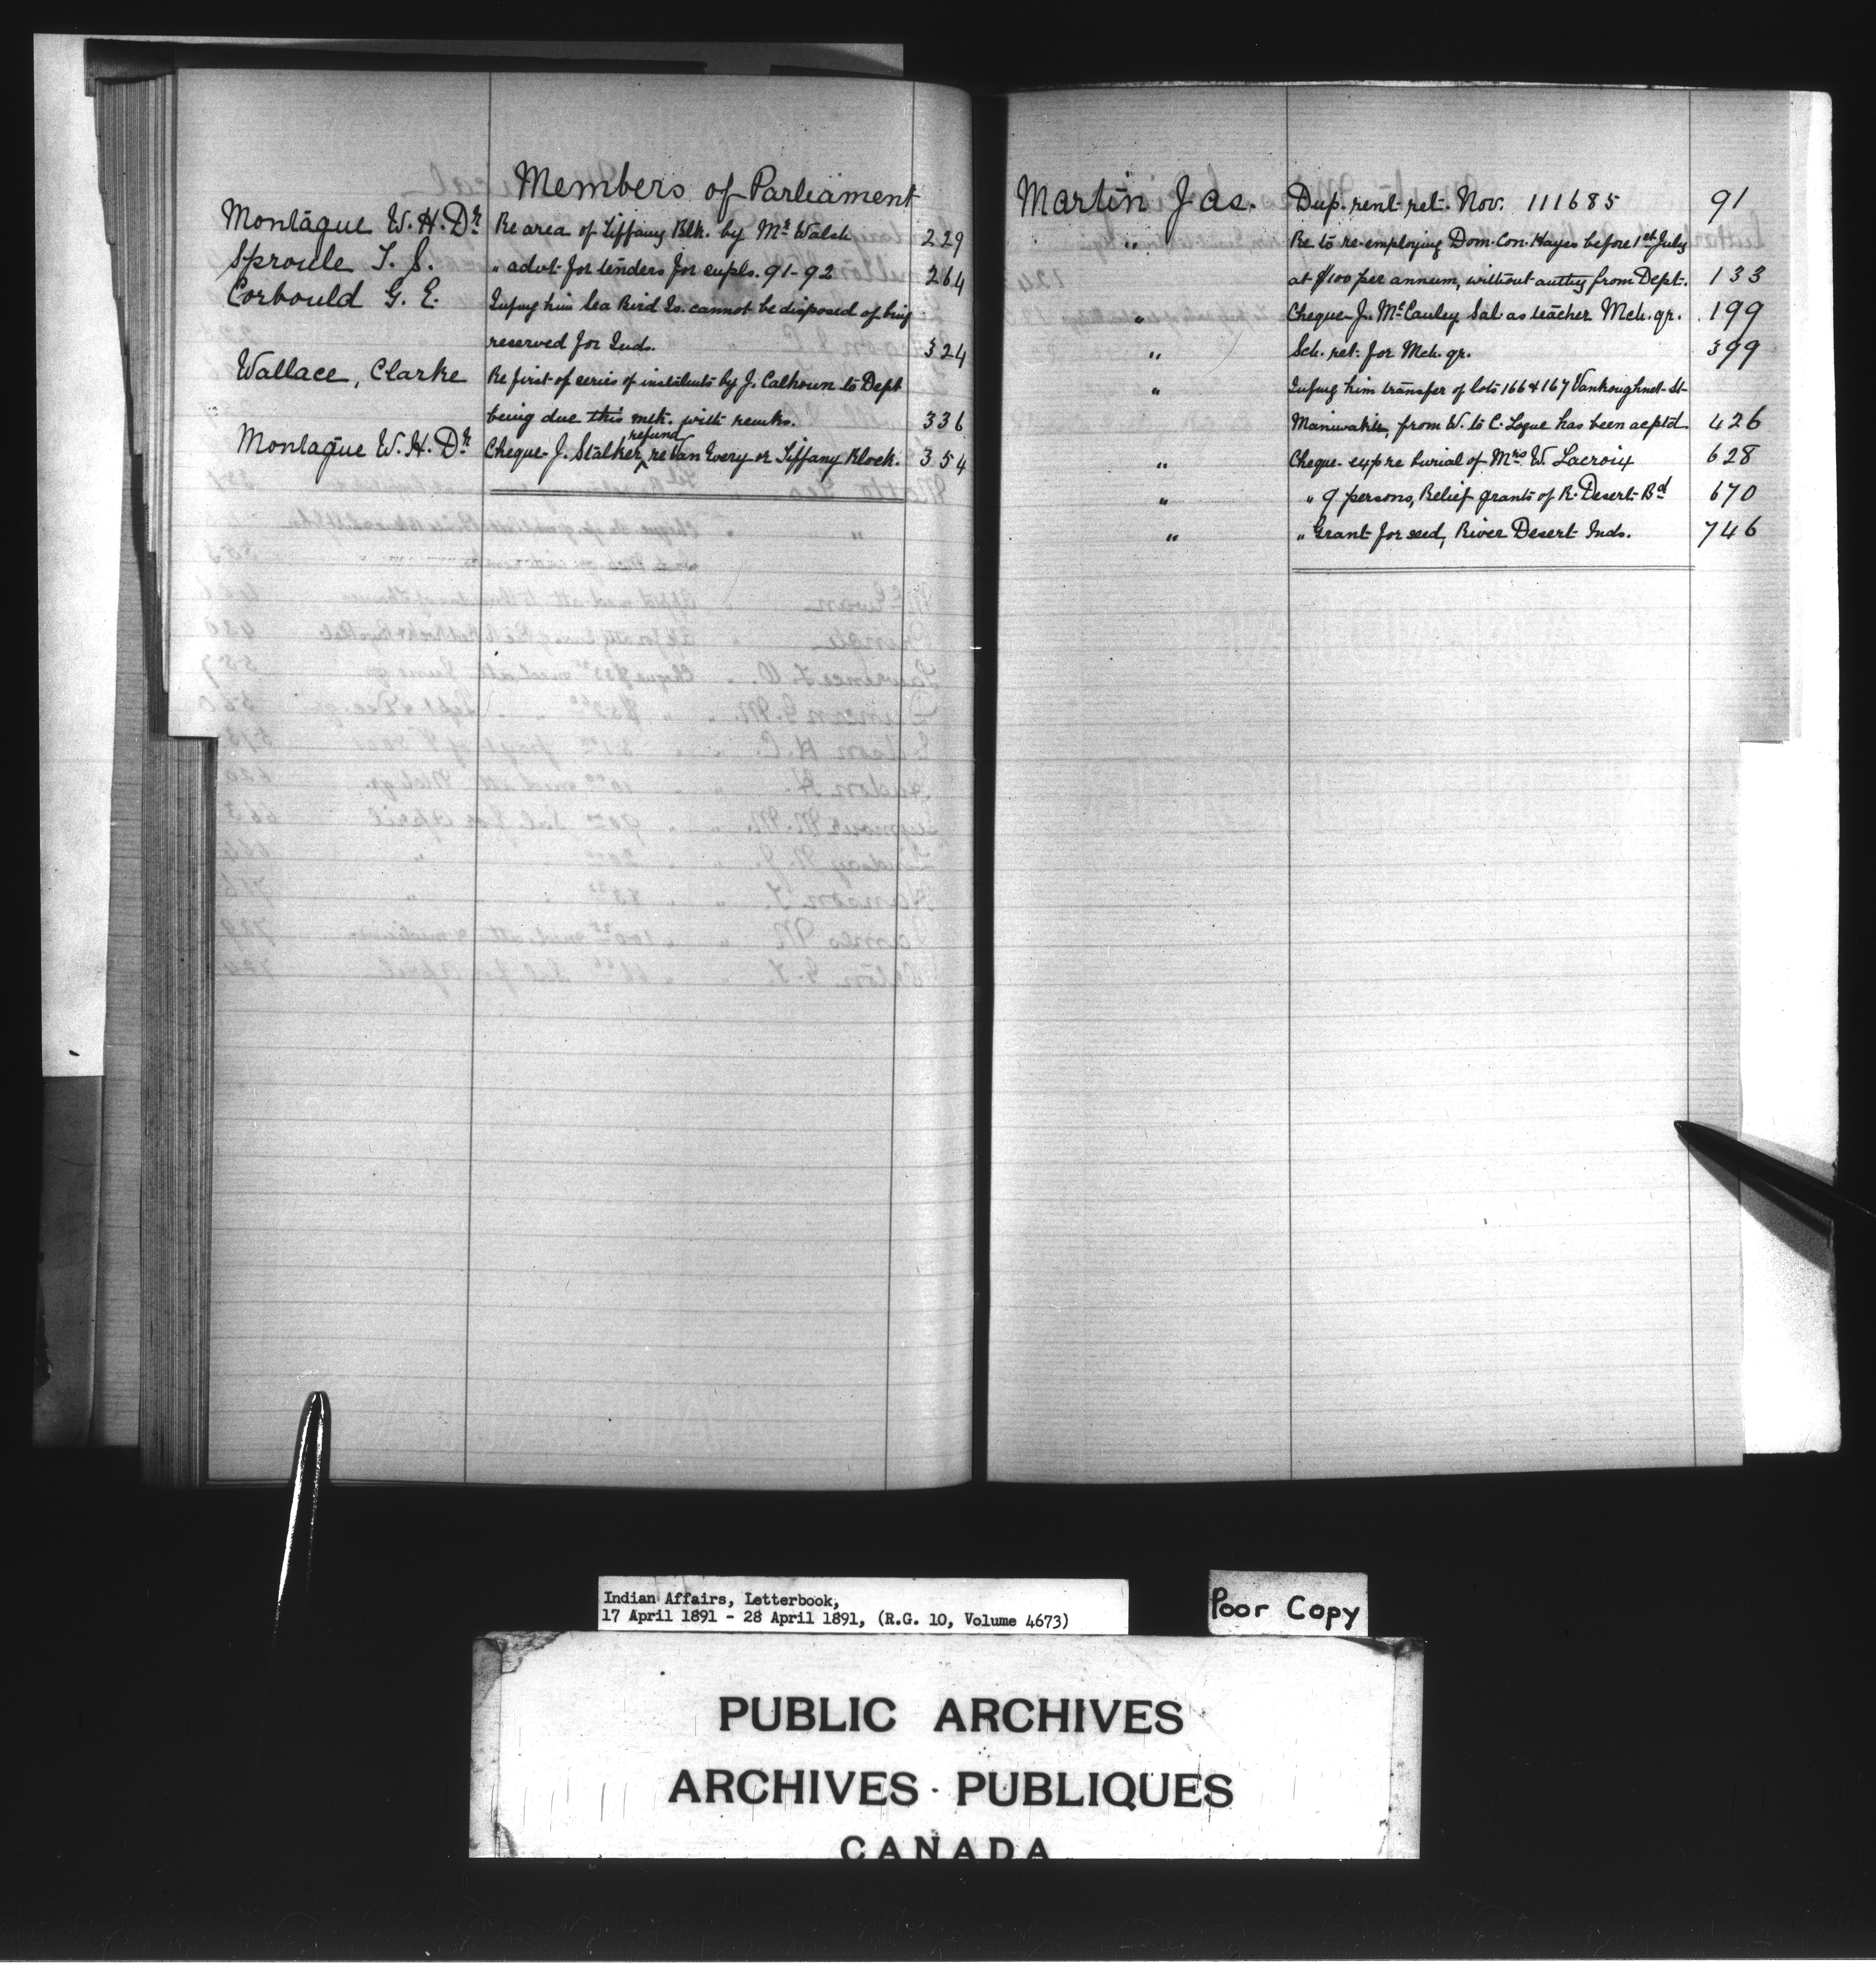 Members of Parliament
Montague W. H. Dr Re area of Tiffany Blk. by Mr Walsh 229
Sproule T. S. " advt for tenders for supls. 91-92 264
Corbould G. E. Infmg him Sea Bird Is. cannot be disposed of being
reserved for Inds. 324
Wallace, Clarke Re first of series of instalmts by J. Calhoun to Dept
being due this mth. with remks. 336
Montague W. H. Dr Cheque J. Stalker refund re Van Every or Tiffany Block. 354
Martin Jas. Dup. rent ret. Nov. 111685 91
" Re to re-employing Dom. Con. Hayes before 1st July
at $100 per annum, without authy from Dept. 133
" Cheque J. McCauley Sal. as teacher Mch. qr. 199
" Sch. ret. for Mch. qr. 399
" Infmg him transfer of lots 166 & 167 Vankoughnet St
Maniwaki, from W. to C. Logue has been aceptd. 426
" Cheque exp re burial of Mrs W. Lacroix 628
" " 9 persons, Relief grants of R. Desert Bd 670
" " Grant for seed, River Desert Inds. 746
Indian Affairs, Letterbook,
17 April 1891 - 28 April 1891, (R.G. 10, Volume 4673)
Poor Copy
PUBLIC ARCHIVES
ARCHIVES PUBLIQUES
CANADA